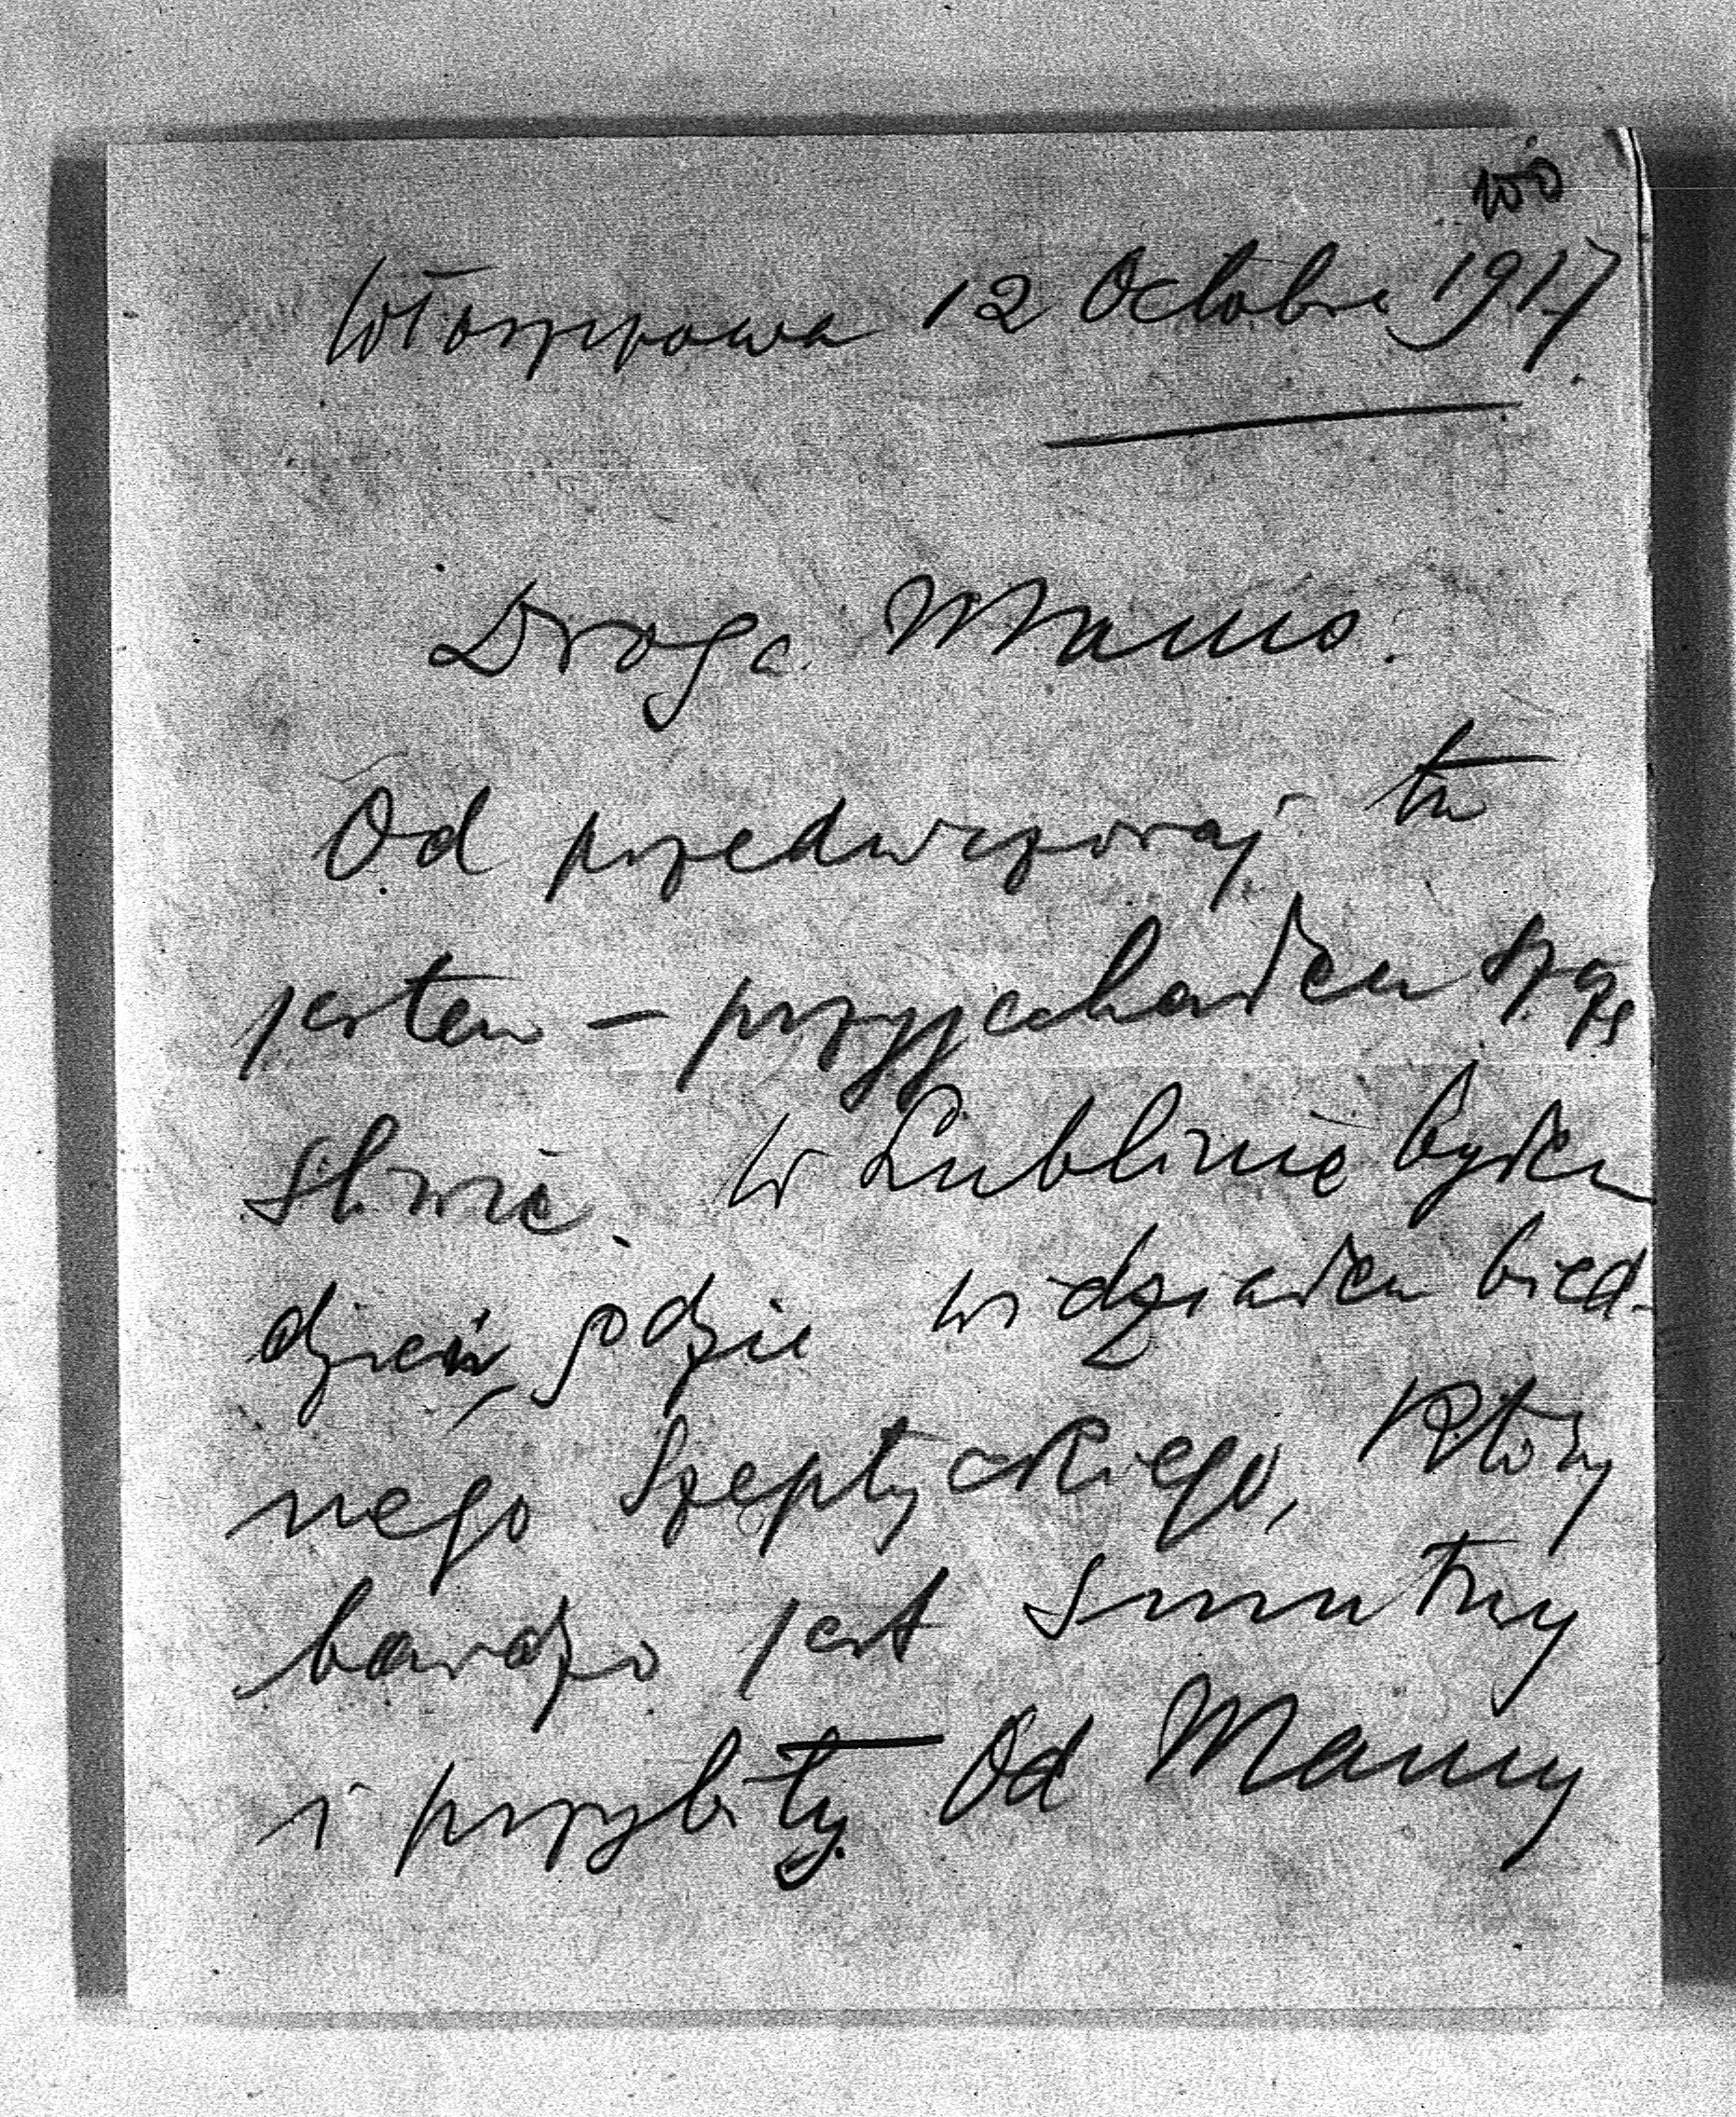 Włoszczowa 12 Octobre 1917.
Droga Mamo.
Od przedwczoraj tu
jestem – przyjechałem szczę
śliwie. W Lublinie byłem
dzień, gdzie widziałem bied-
nego Szeptyckiego, który
bardzo jest smutny
i przybity. Od Mamy